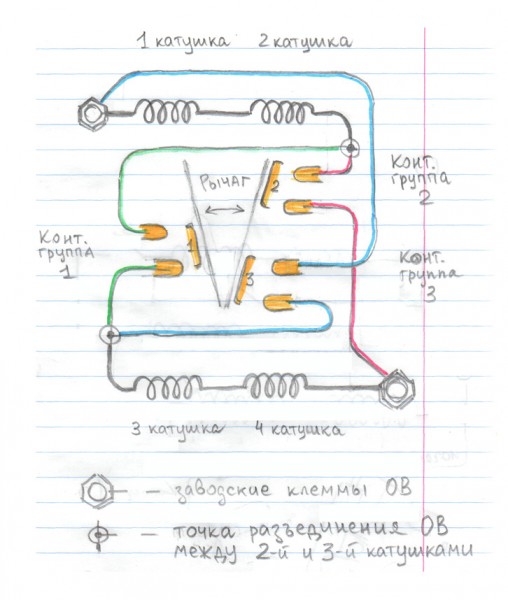 1 катушка 2 катушка
Рычаг
Конт.
группа
2
2
Конт.
группа
1
1
3
Конт.
группа
3
3 катушка 4 катушка
– заводские клеммы ОВ
– точка разъединения ОВ
между 2-й и 3-й катушками